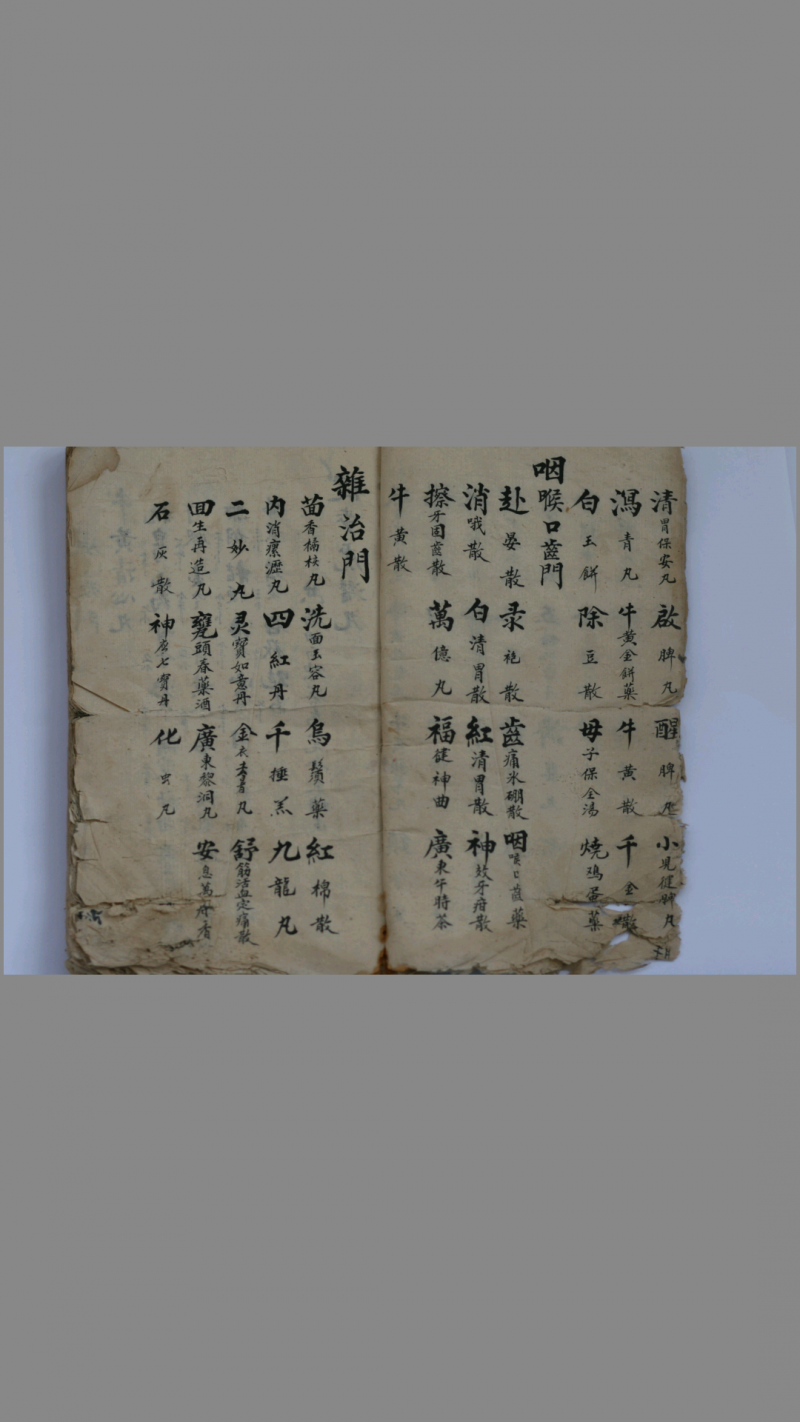 清胃保安丸 啟脾丸 醒脾丸 小兒健脾丸
瀉青丸 牛黃金餅藥 牛黃散 千金散
白玉餅 除豆散 毋子保全湯 燒鴉蛋藥
咽喉口齒門
赴晏散 录袍散 齒痛氷硼散 咽喉口藥
消哦散 白清胃散 紅清胃散 神效牙疳散
擦牙固齒散 萬億丸 福健神曲 廣東午時茶
牛黃散
雜治門
茴香橘核丸 洗面玉容丸 烏鬚藥 紅棉散
內消瘰瀝丸 四紅丹 千捶羔 九龍丸
二妙丸 灵寶如意丹 金衣丸 舒筋活血定痛散
回生再造丸 甕頭春藥酒 廣東黎洞丸 安息萬香
石灰散 神七寶丹 化虫丸